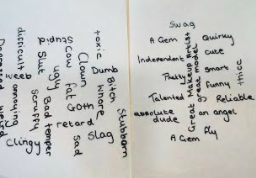 toxic
Dumb Bitch
Whore
Clown
Stupid
Cow
fat
Goth
ugly
Slut
Bad temper
Scruffy
retard
Slag
Sad
Stubborn
difficult
weeb
annoying
Clingy
Depressed
weird
Swag
A Gem
Quirky
Independent
Cute
Great Makeup Artist
Great mode
Pretty
Smart
Funny
thicc
Talented
Reliable
absolute dude
an angel
A Gem
fly